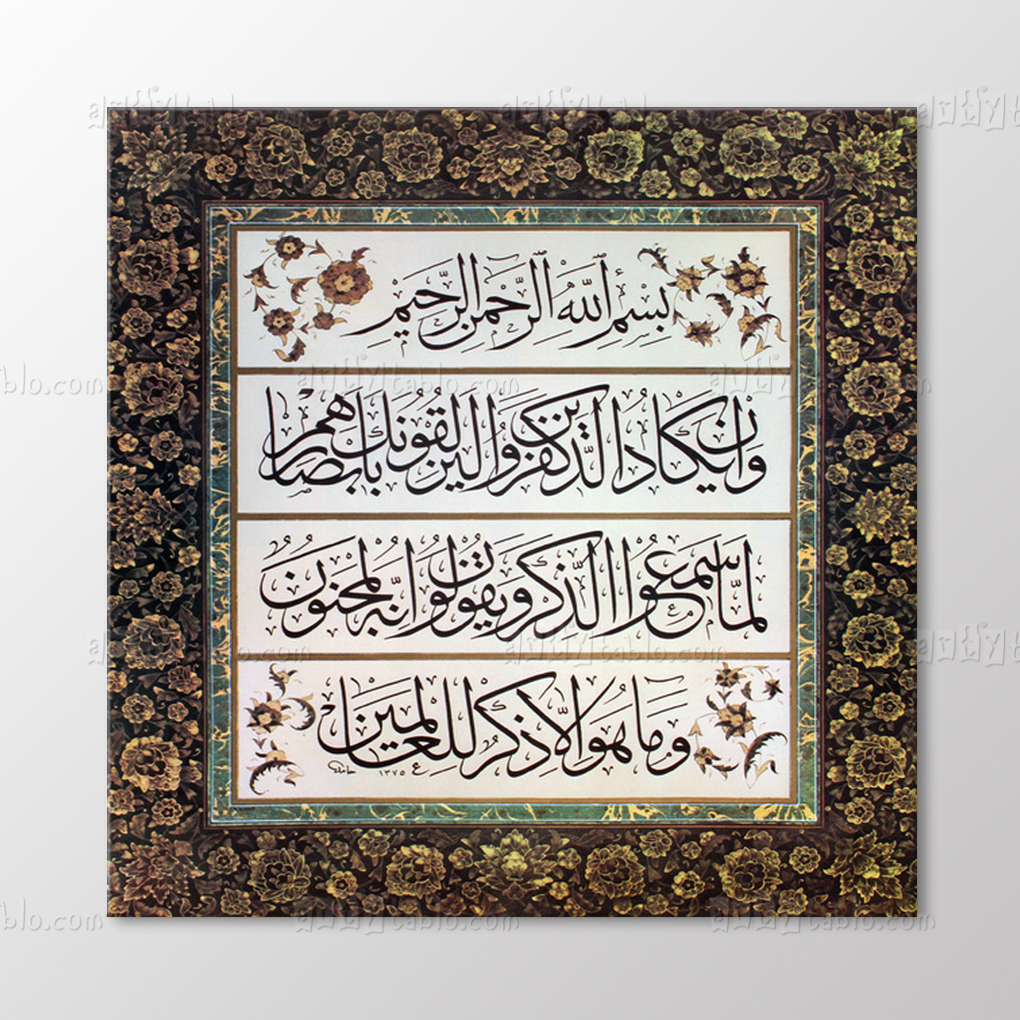 بِسْمِ اللّٰهِ الرَّحْمٰنِ الرَّحِيمِ
وَاِنْ يَكَادُ الَّذِينَ كَفَرُوا لَيُزْلِقُونَكَ بِاَبْصَارِهِمْ
لَمَّا سَمِعُوا الذِّكْرَ وَيَقُولُونَ اِنَّهُ لَمَجْنُونٌ
وَمَا هُوَ اِلَّا ذِكْرٌ لِلْعَالَمِينَ
حامد ١٣٧٥
artiytablo.com